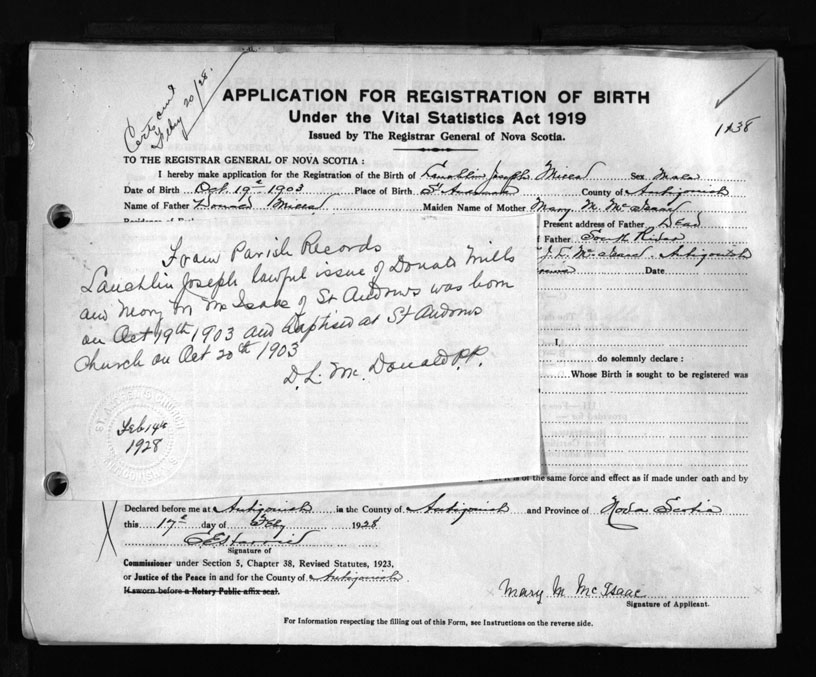 Feby 20/28.
APPLICATION FOR REGISTRATION OF BIRTH
Under the Vital Statistics Act 1919
Issued by The Registrar General of Nova Scotia.
TO THE REGISTRAR GENERAL OF NOVA SCOTIA :
I hereby make application for the Registration of the Birth of Lauchlin Joseph Sex Male
Date of Birth Oct. 19th 1903 Place of Birth St Andrews County of Antigonish
Name of Father Donald Maiden Name of Mother Mary M. McIsaac
Present address of Father Dead
f Father South River
McIsaac. Antigonish
Date
From Parish Records
Lauchlin Joseph lawful issue of Donald Mills
and Mary M McIsaac of St Andrews was born
on Oct 19th 1903 and baptised at St Andrews
Church on Oct 20th 1903
D. L. McDonald P.P.
Feb 14th
1928
I,
do solemnly declare :
Whose Birth is sought to be registered was
it is of the same force and effect as if made under oath and by
Declared before me at Antigonish in the County of Antigonish and Province of Nova Scotia
this 17th day of Feby 1928
Signature of
Commissioner under Section 5, Chapter 38, Revised Statutes, 1923,
or Justice of the Peace in and for the County of Antigonish
If sworn before a Notary Public affix seal.
Mary M McIsaac
Signature of Applicant.
For Information respecting the filling out of this Form, see Instructions on the reverse side.